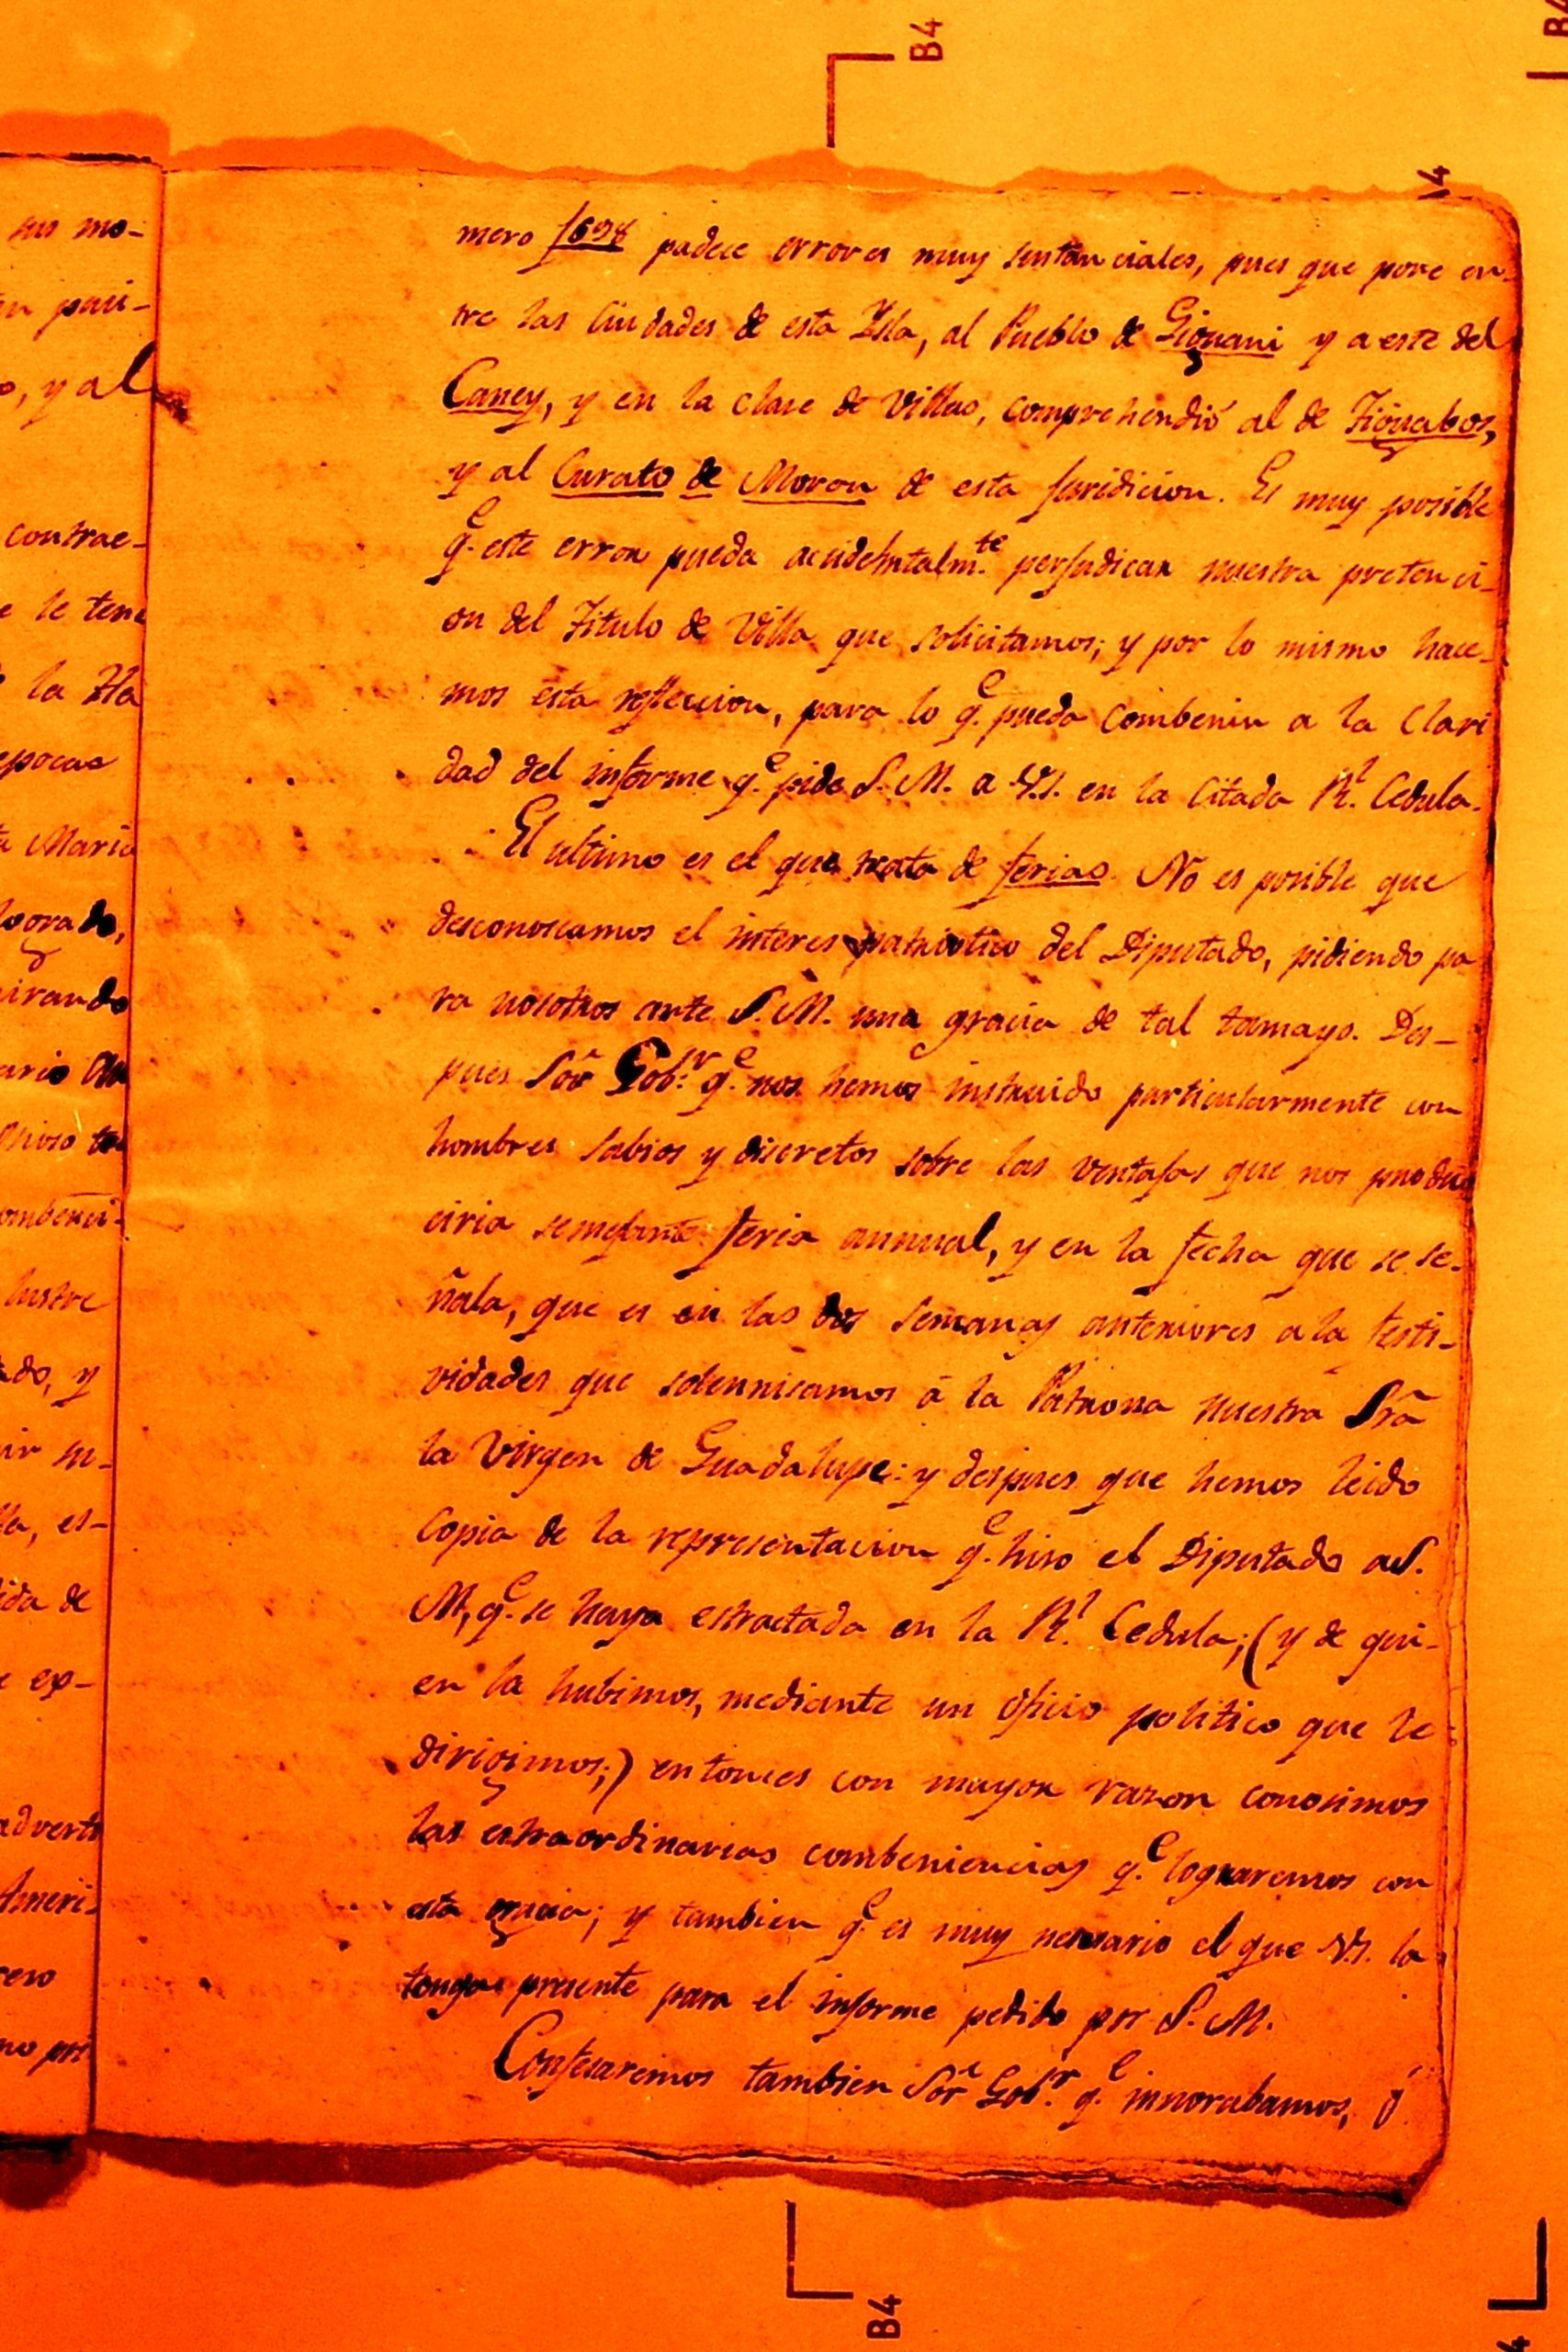 mero 1698 padece errores muy sustanciales, pues que pone en-
tre las Ciudades de esta Ysla, al Pueblo de Giguani y a este del
Caney, y en la clase de Villas, comprehendió al de Tiguabos,
y al Curato de Moron de esta Juridicion. Es muy posible
q.e este error pueda accidentalm.te perjudicar nuestra pretenci-
on del Titulo de Villa que solicitamos; y por lo mismo hace-
mos esta refleccion, para lo q.e pueda combenir a la clari
dad del informe q.e pide S.M. a V.S. en la citada R.l Cedula.
El ultimo es el que trata de ferias. No es posible que
desconoscamos el interes patriotico del Diputado, pidiendo pa
ra nosotros ante S.M. una gracia de tal tamayo. Des-
pues Sõr Gob.r q.e nos hemos instruido particularmente con
hombres sabios y discretos sobre las ventajas que nos produ
ciria semejante feria annual, y en la fecha que se se-
ñala, que es en las dos semanas anteriores a la festi-
vidades que solennisamos á la Patrona nuestra Srã
la Virgen de Guadalupe: y despues que hemos leido
copia de la representacion q.e hiso el Diputado a S.
M, q.e se haya estractada en la R.l Cedula; (y de qui-
en la hubimos, mediante un oficio politico que le
dirigimos;) entonces con mayor razon conosimos
las estraordinarias combeniencias q.e lograremos con
esta gracia; y tambien q.e es muy nesesario el que V.S. la
tenga presente para el informe pedido por S.M.
Confesaremos tambien Sõr Gob.r q.e innorabamos, ó
sus mo-
o, y al
contrae-
e le tene
la Ysla
epocas
a Maria
logrado,
irando
lustre
do, y
la, es-
ida de
e ex-
adverti
Ameri-
B4
B4
B4
4
4